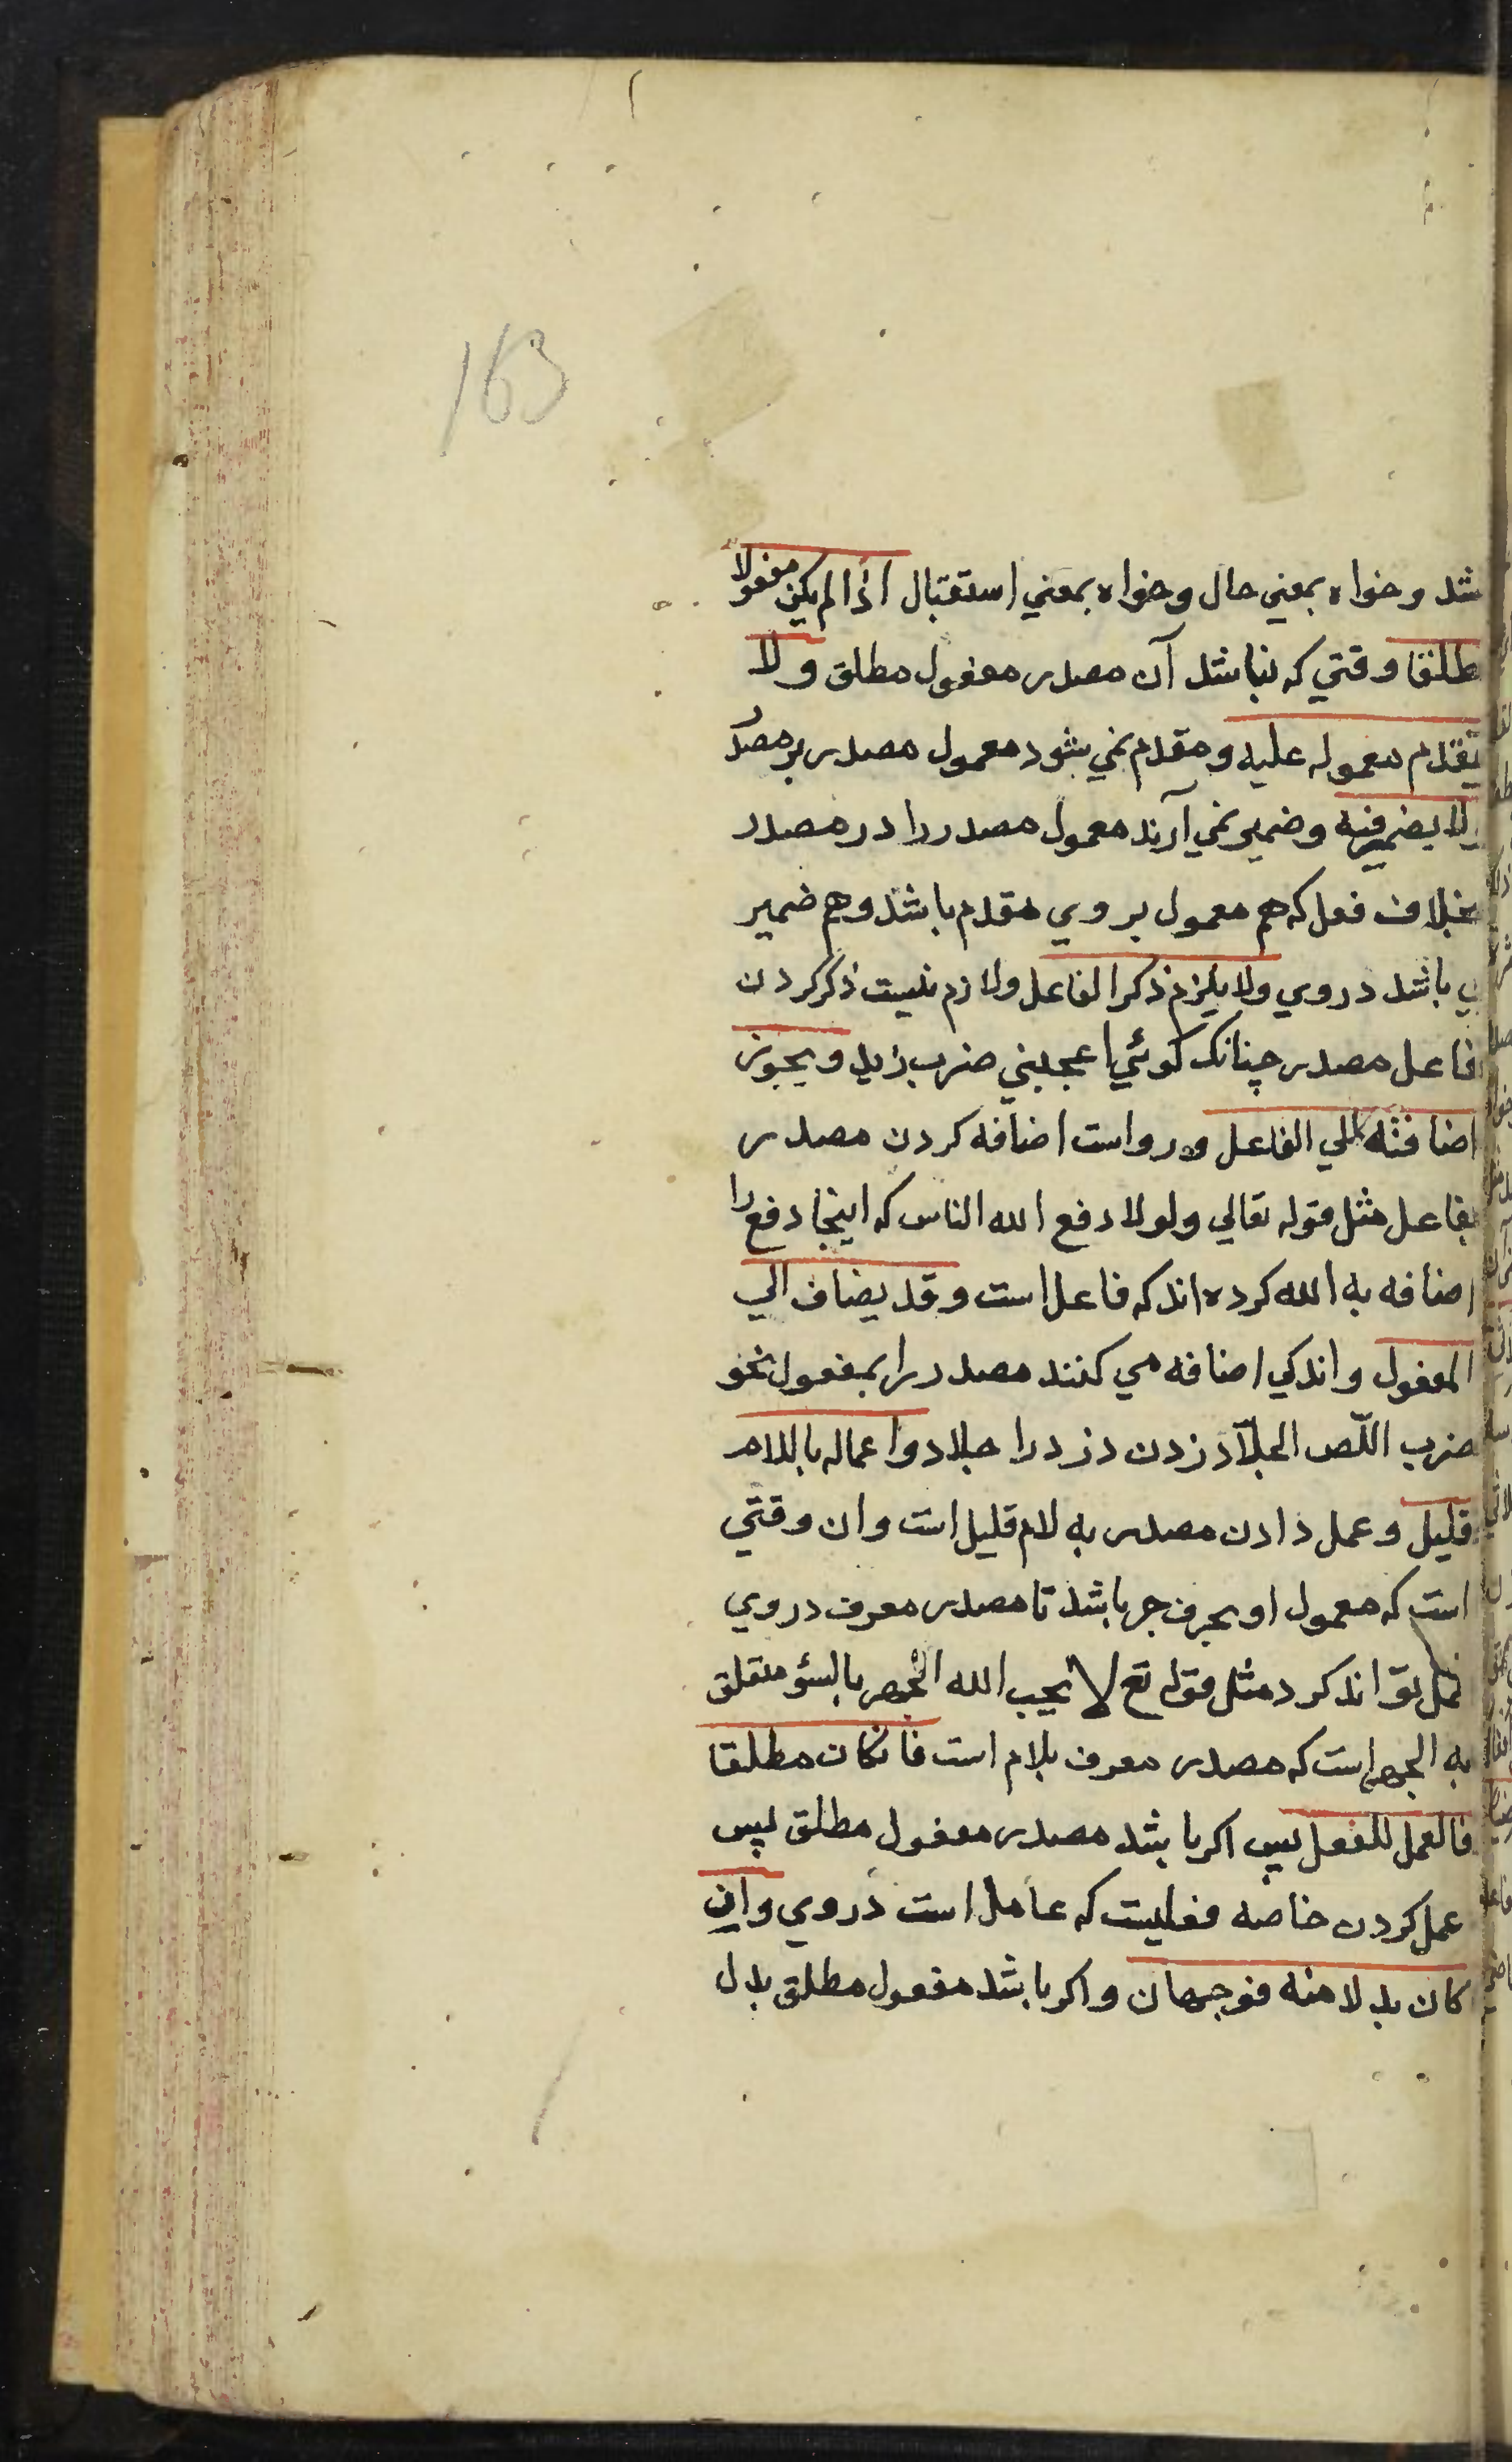 163
شد وخواه بمعني حال وخواه بمعني استقبال اذا لم يكن مفعولا
مطلقا وقتي كه نباشد آن مصدر مفعول مطلق ولا
يتقدم معموله عليه ومقدم نمي شود معمول مصدر بر مصدر
ولا يضمر فيه وضمير نمي آرند معمول مصدر را در مصدر
بخلاف فعل كه هم معمول بر وي مقدم باشد وهم ضمير
مي باشد در وي ولا يلزم ذكر الفاعل ولازم نيست ذكر كردن
فاعل مصدر چنانك كوئي اعجبني ضرب زيد ويجوز
اضافته الي الفاعل ورواست اضافه كردن مصدر
بفاعل مثل قوله تعالي ولولا دفع الله الناس كه اينجا دفع را
اضافه به الله كرده اند كه فاعل است وقد يضاف الي
المفعول واندكي اضافه مي كنند مصدر را بمفعول نحو
ضرب اللّص الجلّاد زدن دزد را جلاد واعماله باللام
قليل وعمل دادن مصدر به لام قليل است وان وقتي
است كه معمول او بحرف جر باشد تا مصدر معرف در وي
عمل تواند كرد مثل قوله تع لا يحب الله الجهر بالسؤ متعلق
به الجهر است كه مصدر معرف بلام است فان كان مطلقا
فالعمل للفعل پس اكر باشد مصدر مفعول مطلق پس
عمل كردن خاصه فعليست كه عامل است در وي وان
كان بدلا منه فوجهان واكر باشد مفعول مطلق بدل